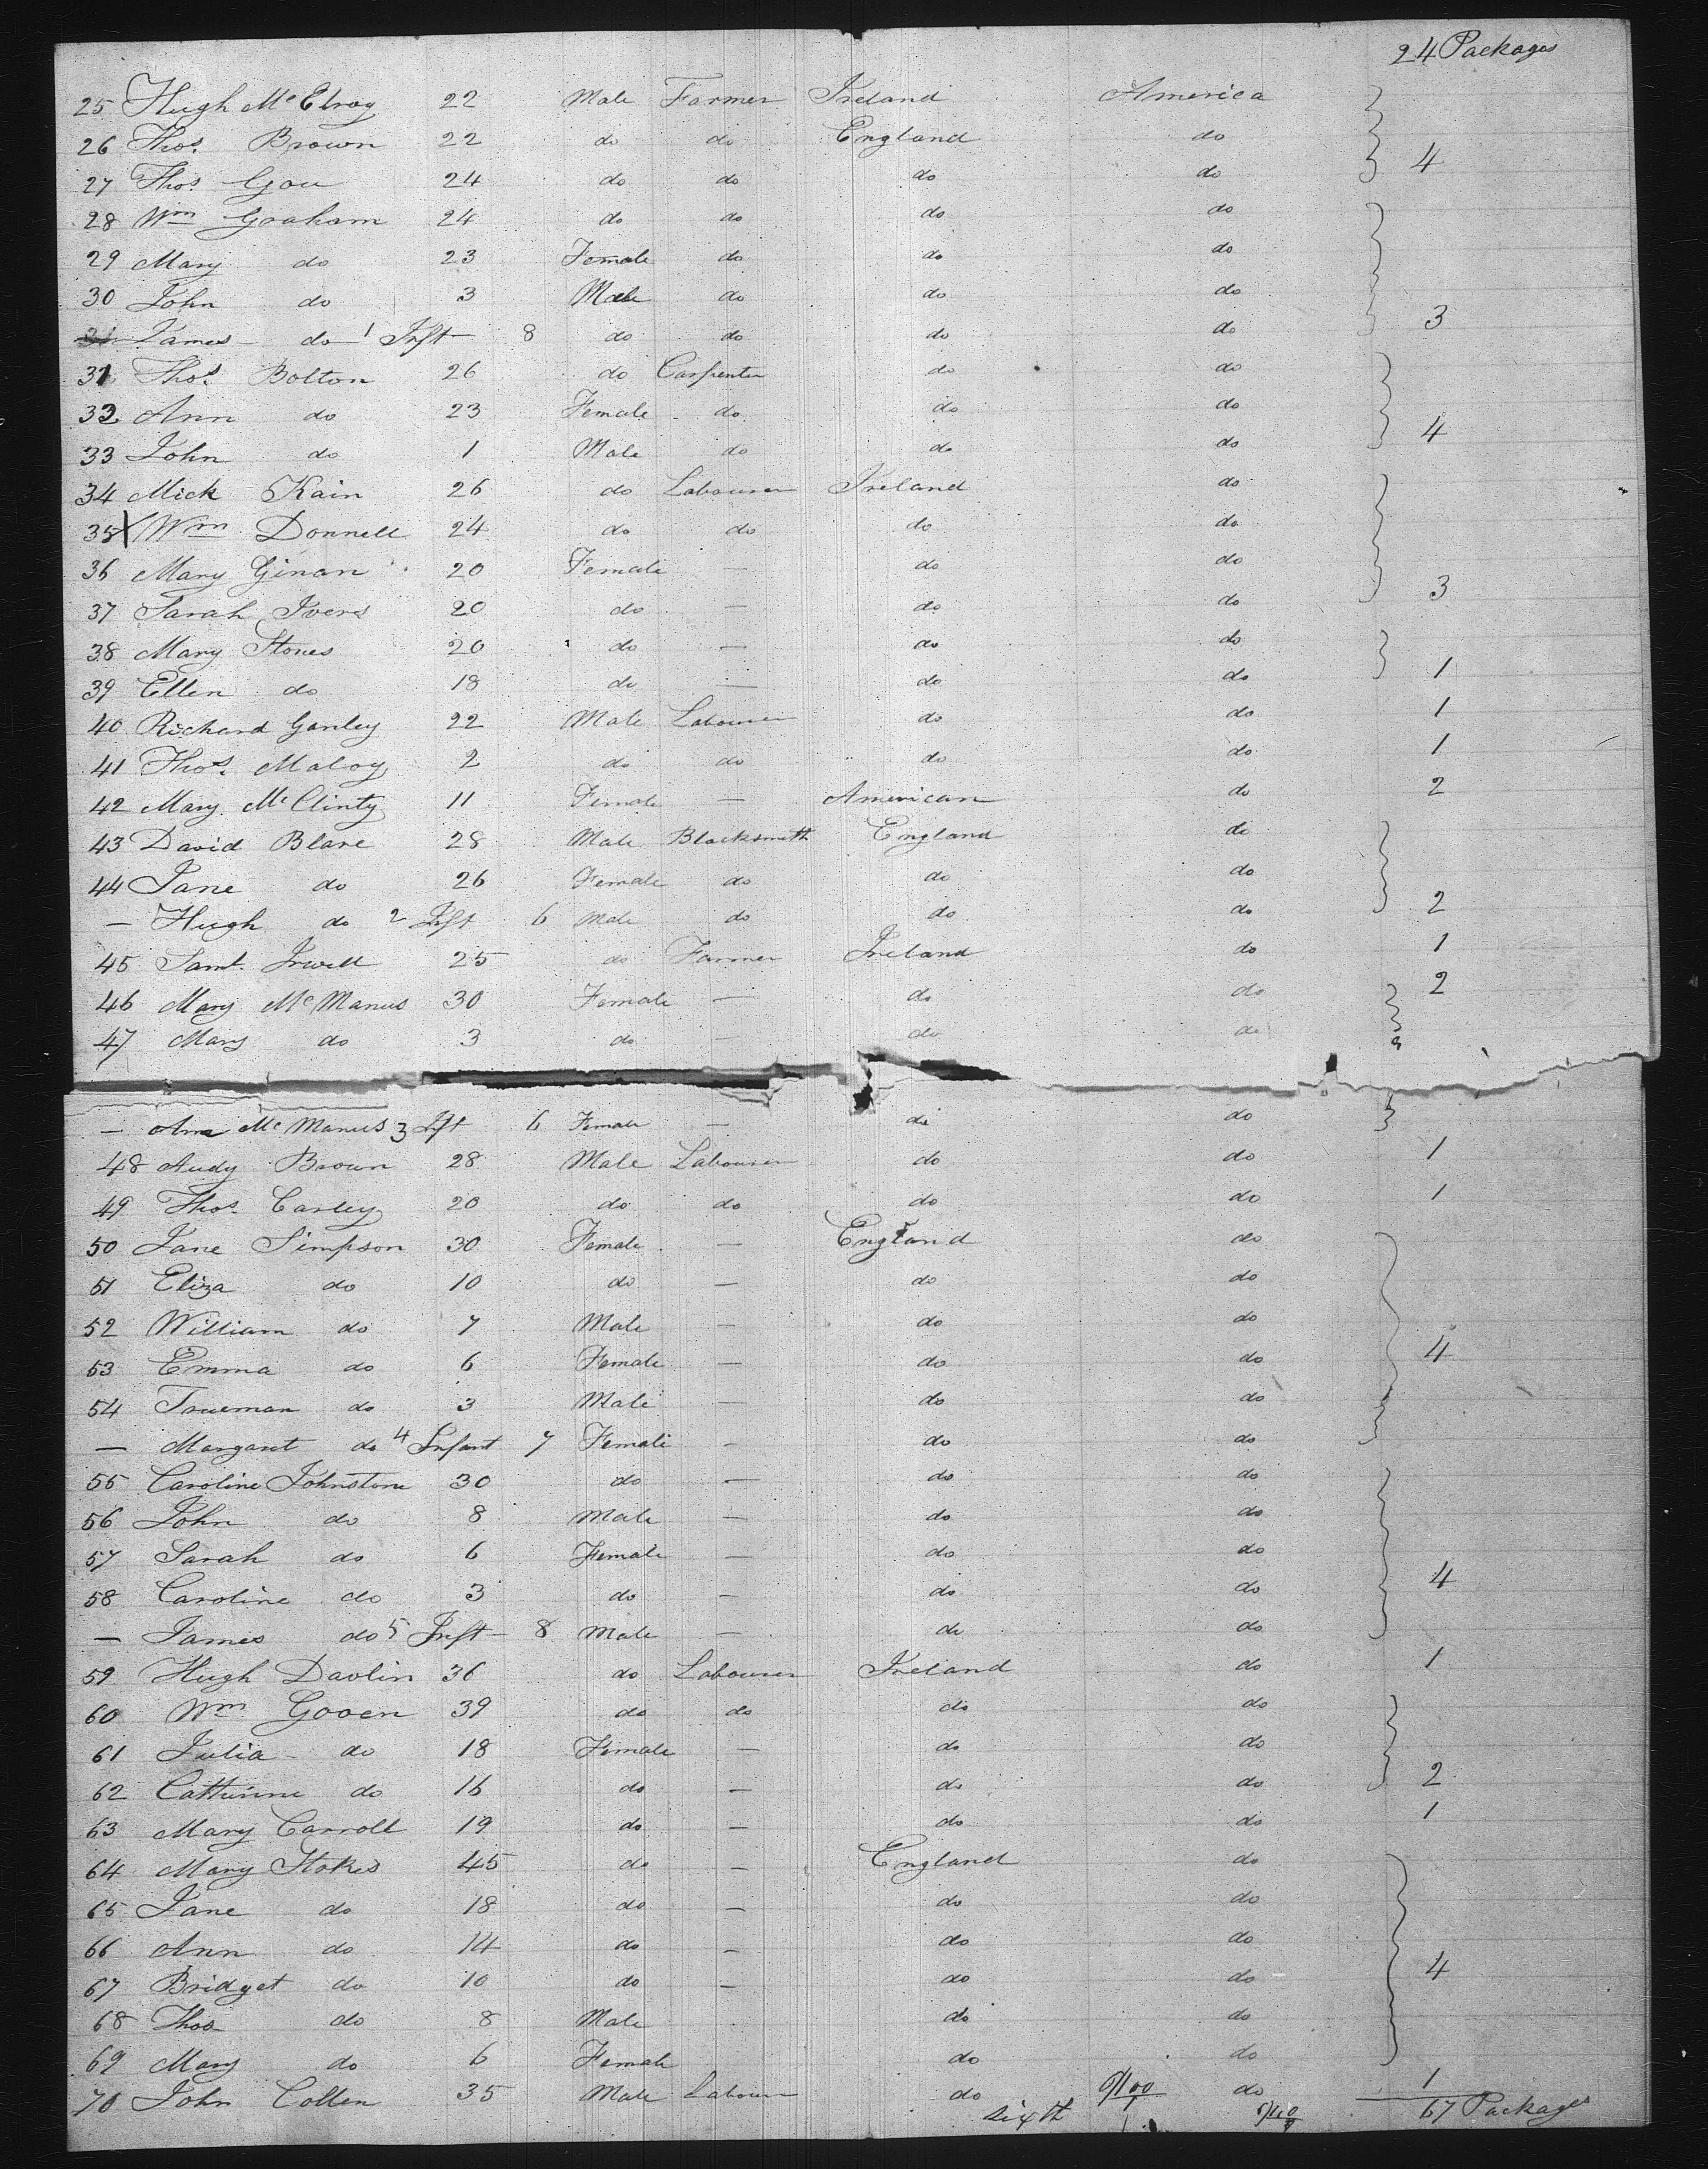 24 Packages
25 Hugh McElroy 22 Male Farmer Ireland America
26 Thos. Brown 22 do do England do
27 Thos. Gou 24 do do do do 4
28 Wm Graham 24 do do do do
29 Mary do 23 Female do do do
30 John do 3 Male do do do
James do 1 Inft 8 do do do do 3
31 Thos. Bolton 26 do Carpenter do do
32 Ann do 23 Female do do do
33 John do 1 Male do do do 4
34 Mick Kain 26 do Labourer Ireland do
35 X Wm Donnell 24 do do do do
36 Mary Ginan 20 Female — do do
37 Sarah Ivers 20 do — do do 3
38 Mary Stones 20 do — do do
39 Ellen do 18 do — do do 1
40 Richard Ganley 22 Male Labourer do do 1
41 Thos. Maloy 2 do do do do 1
42 Mary McClinty 11 Female — American do 2
43 David Blare 28 Male Blacksmith England do
44 Jane do 26 Female do do do
— Hugh do 2 Inft 6 Male do do do 2
45 Saml. Irwell 25 do Farmer Ireland do 1
46 Mary McManus 30 Female — do do 2
47 Mary do 3 do — do do
— Ann McManus 3 Ift 6 Female — do do
48 Andy Brown 28 Male Labourer do do 1
49 Thos. Carley 20 do do do do 1
50 Jane Simpson 30 Female — England do
51 Eliza do 10 do — do do
52 William do 7 Male — do do
53 Emma do 6 Female — do do 4
54 Trueman do 3 Male — do do
— Margaret do 4 Infant 7 Female — do do
55 Caroline Johnstone 30 do — do do
56 John do 8 Male — do do
57 Sarah do 6 Female — do do
58 Caroline do 3 do — do do 4
— James do 5 Inft 8 Male — do do
59 Hugh Davlin 36 do Labourer Ireland do 1
60 Wm Gooen 39 do do do do
61 Julia do 18 Female — do do
62 Catherine do 16 do — do do 2
63 Mary Carroll 19 do — do do 1
64 Mary Stokes 45 do — England do
65 Jane do 18 do — do do
66 Ann do 14 do — do do
67 Bridget do 10 do — do do 4
68 Thos do 8 Male do do
69 Mary do 6 Female do do
70 John Collen 35 Male Labourer do do 1
sixth 67 Packages